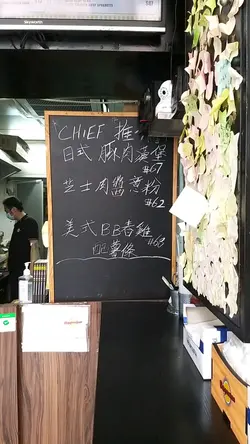 CHIEF 推
日式豚肉漢堡
#67
芝士肉醬意粉
#62
美式BB春雞
#63
配薯條